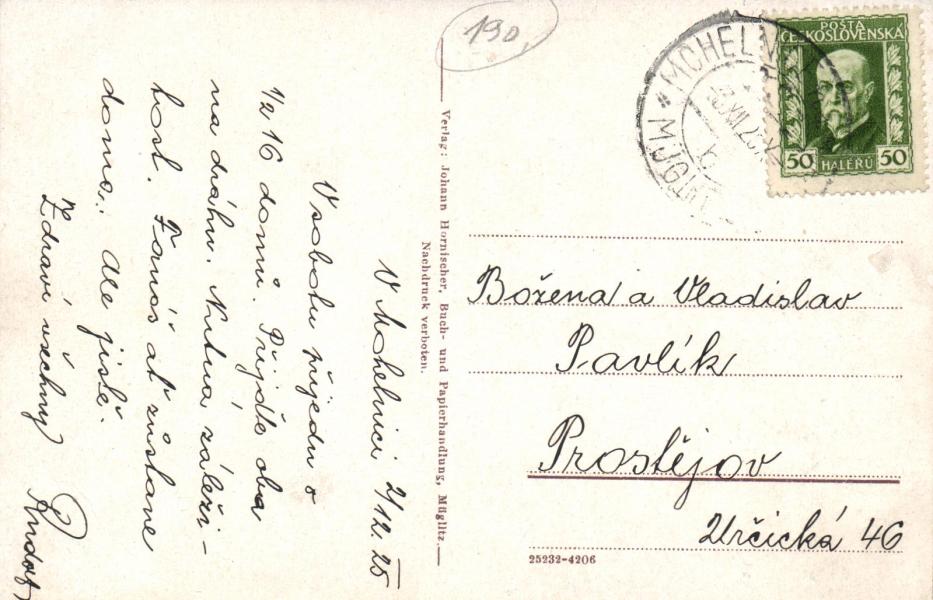 190
POŠTA
ČESKOSLOVENSKÁ
50 HALÉŘŮ 50
* MOHELNICE
MÜGLITZ
V Mohelnici 2/12.25
V sobotu přijedu o
1/2 16 domů. Přijďte oba
na dráhu. Nutná záleži-
tost. Tomáš ať zůstane
doma. Ale jistě.
Zdraví všechny
Rudolf
Verlag: Johann Hornischer, Buch- und Papierhandlung, Müglitz.
Nachdruck verboten.
Božena a Vladislav
Pavlík
Prostějov
Určická 46
25232-4206